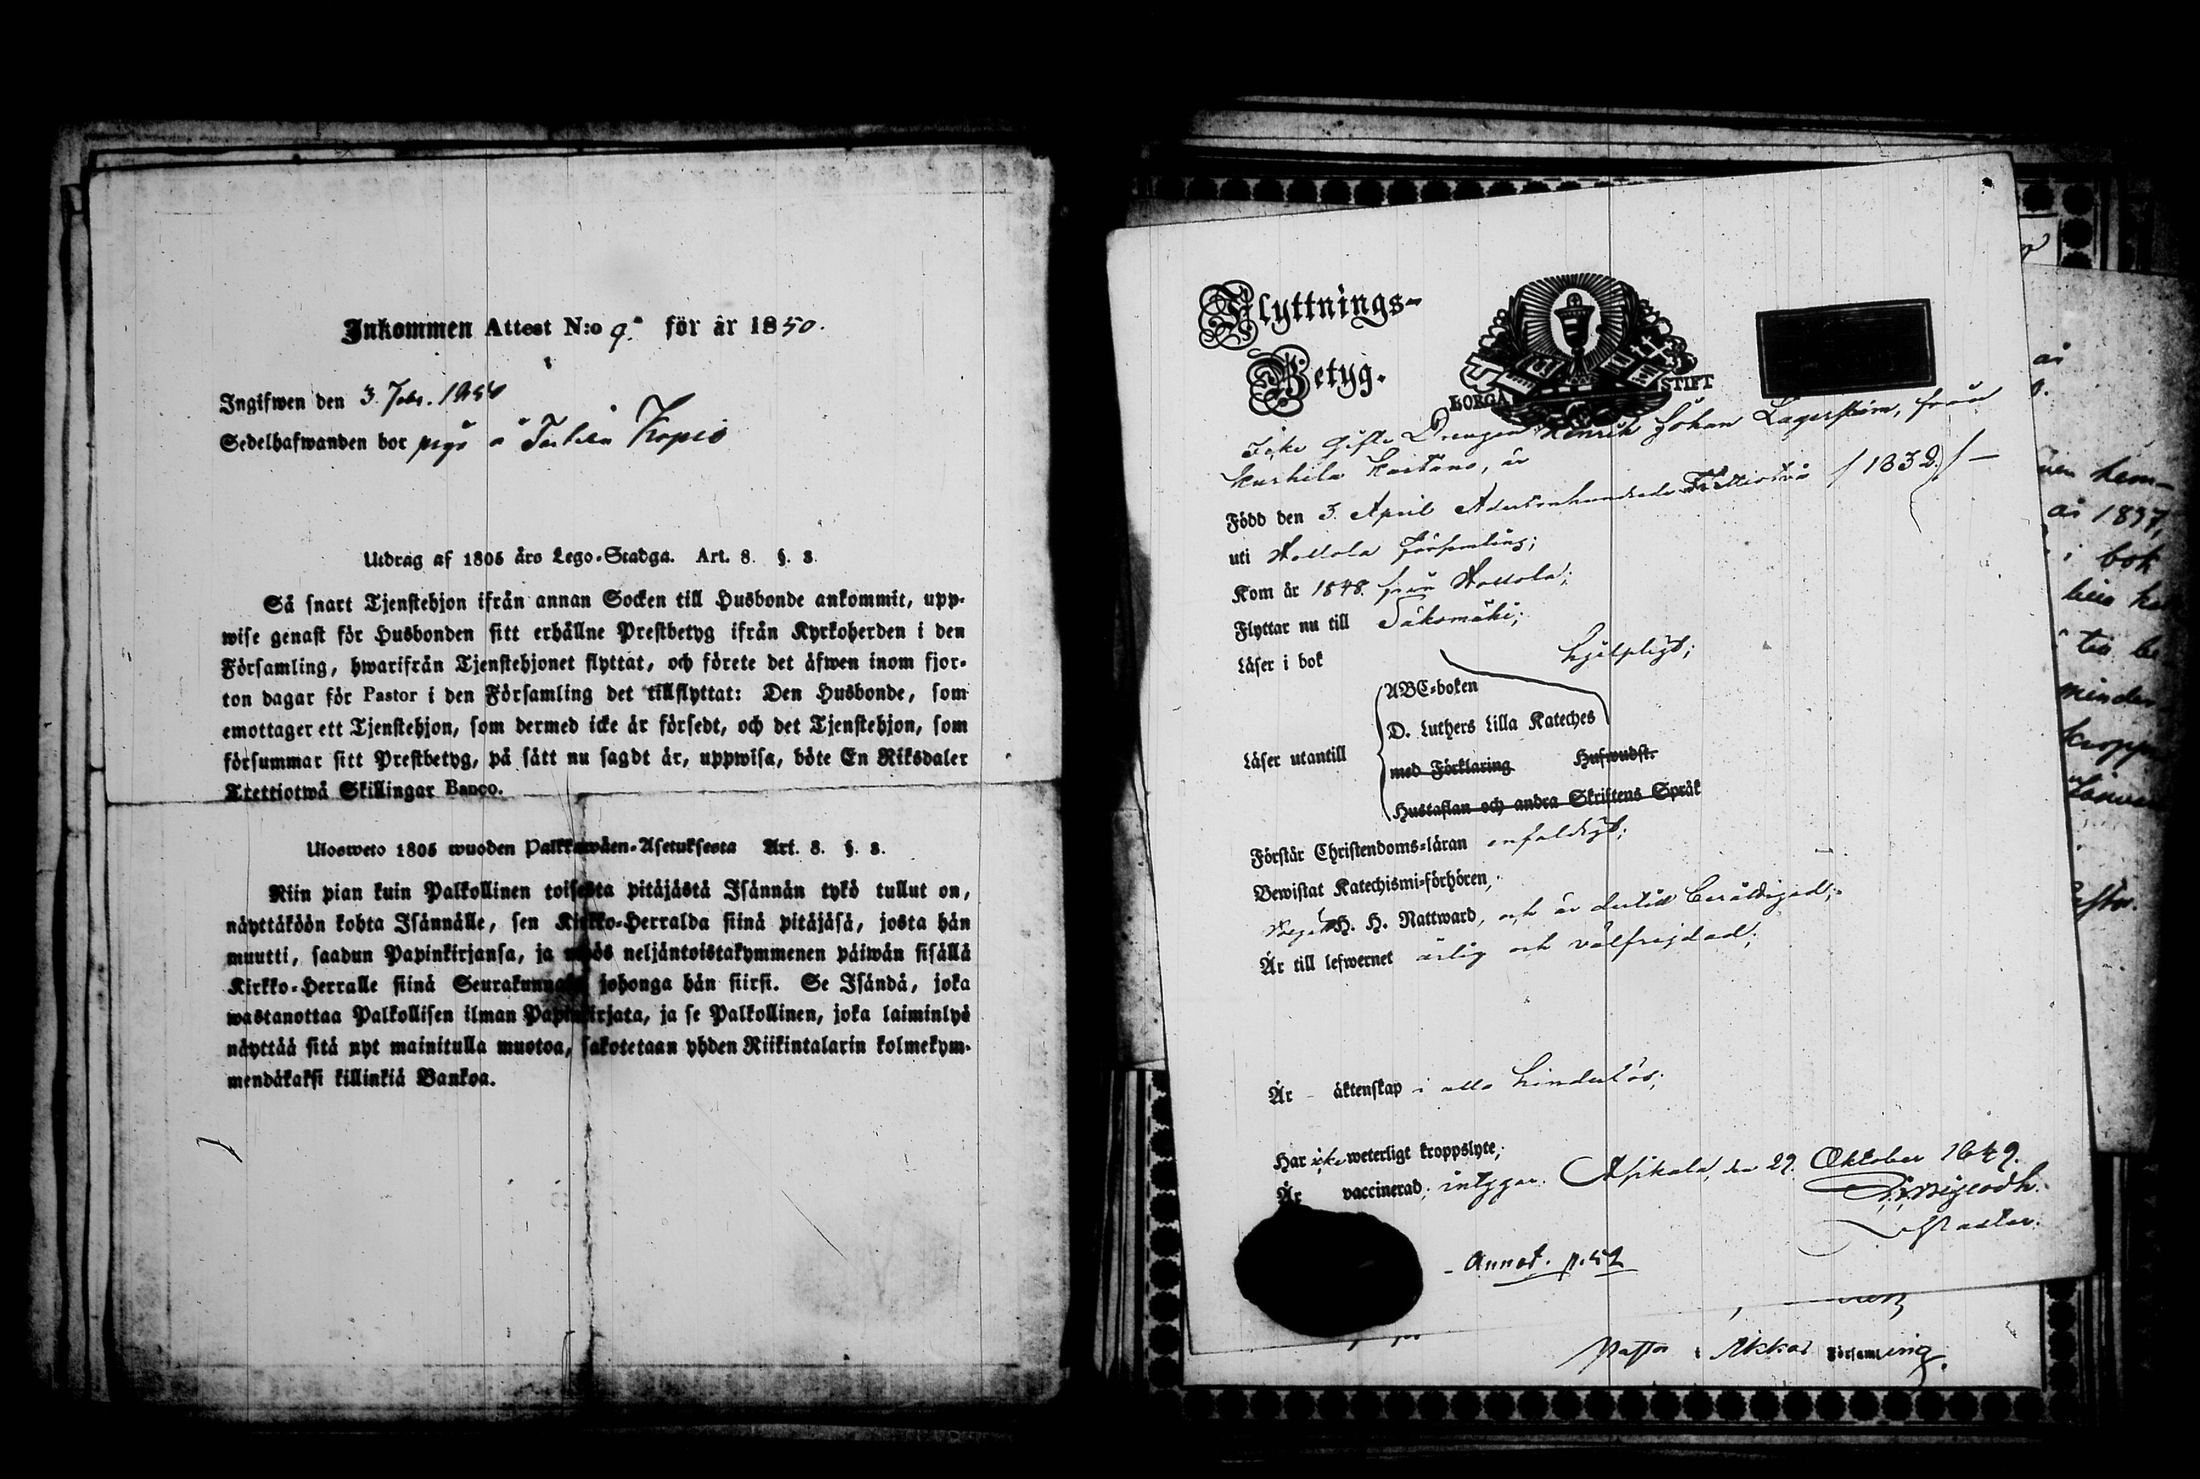 Inkommen Attest N:o 9. för år 1850.
Ingifwen den 3 Febr. 1850
Sedelhafwanden bor
Utdrag af 1805 års Lego-Stadga. Art. 8. §. 3.
Så snart Tjenstehjon ifrån annan Socken till Husbonde ankommit, upp-
wise genast för Husbonden sitt erhållne Prestbetyg ifrån Kyrkoherden i den
Församling, hwarifrån Tjenstehjonet flyttat, och förete det äfwen inom fjor-
ton dagar för Pastor i den Församling det tillflyttat: Den Husbonde, som
emottager ett Tjenstehjon, som dermed icke är försedt, och det Tjenstehjon, som
försummar sitt Prestbetyg, på sätt nu sagdt är, uppwisa, böte En Riksdaler
Trettiotwå Skillingar Banco.
Ulosweto 1805 wuoden Palkkawäen-Asetuksesta Art. 8. §. 3.
Niin pian kuin Palkollinen toisesta pitäjästä Isännän tykö tullut on,
näyttäköön kohta Isännälle, sen Kirkko-Herralda siinä pitäjäsä, josta hän
muutti, saadun Papinkirjansa, ja myös neljäntoistakymmenen päiwän sisällä
Kirkko-Herralle siinä Seurakunnasa johonga hän siirsi. Se Isändä, joka
wastanottaa Palkollisen ilman Papinkirjata, ja se Palkollinen, joka laiminlyö
näyttää sitä nyt mainitulla muotoa, sakotetaan yhden Riikintalarin kolmekym-
mendäkaksi killinkiä Bankoa.
Flyttnings-
Betyg.
BORGÅ STIFT
Icke Gifte Drengen Henrik Johan Lagerström, från
Kurhila Kartano, är
Född den 3 April Adertonhundrade Trettiotvå /1832/ —
uti Hollola Församling;
Kom år 1848 från Hollola;
Flyttar nu till Sääksmäki;
Läser i bok hjelpligt;
ABC-boken
D. Luthers Lilla Kateches
Läser utantill
med Förklaring Hufwudst.
Hustaflan och andra Skriftens Språk
Förstår Christendoms-läran enfaldigt;
Bewistat Katechismi-förhören,
H. H. Nattward, och är dertill berättigad;
Är till lefwernet ärlig och välfrejdad;
Är äktenskap i allo hinderlös;
Har icke weterligt kroppslyte;
Är vaccinerad; intygar. Asikkala, den 29. Oktober 1849.
Pastor.
Annot. p. 52
Pastor i Akkas Församling.